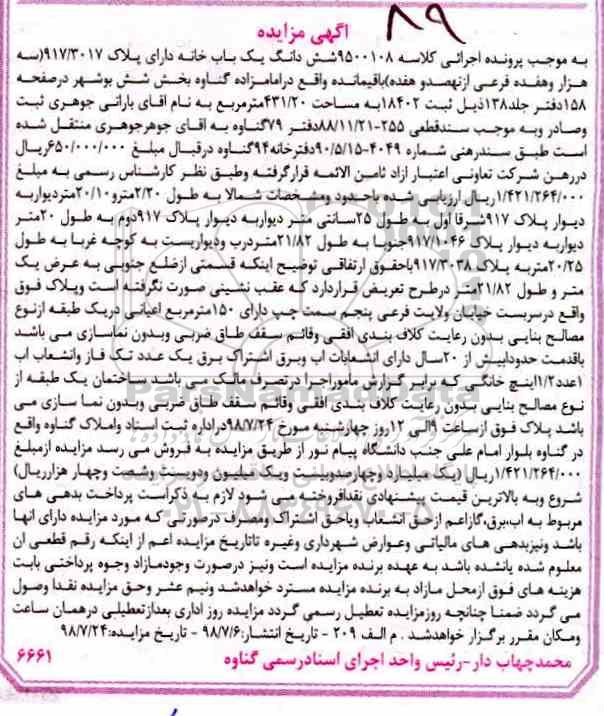 ۸۹
آگهی مزایده
به موجب پرونده اجرائی کلاسه ۹۵۰۰۱۰۸ شش دانگ یک باب خانه دارای پلاک ۹۱۷/۳۰۱۷(سه
هزار وهفده فرعی ازنهصدو هفده)باقیمانده واقع درامامزاده گناوه بخش شش بوشهر درصفحه
۱۵۸دفتر جلد۱۳۸ذیل ثبت ۱۸۴۰۲به مساحت ۴۳۱/۲۰مترمربع به نام اقای بارانی جوهری ثبت
وصادر وبه موجب سندقطعی ۲۵۵-۸۸/۱۱/۲۱دفتر ۷۹گناوه به آقای جوهرجوهری منتقل شده
است طبق سندرهنی شماره ۴۰۴۹-۹۰/۵/۱۵دفترخانه۹۴گناوه درقبال مبلغ ۶۵۰/۰۰۰/۰۰۰ریال
دررهن شرکت تعاونی اعتبار ازاد ثامن الائمه قرارگرفته وطبق نظر کارشناس رسمی به مبلغ
۱/۴۲۱/۲۶۴/۰۰۰ریال ارزیابی شده باحدود ومشخصات شمالا به طول ۲/۲۰مترو۲۰/۱۰متردیواربه
دیوار پلاک ۹۱۷شرقا اول به طول ۲۵سانتی متر دیواربه دیوار پلاک ۹۱۷دوم به طول ۲۰متر
دیواربه دیوار پلاک ۹۱۷/۱۰۴۶جنوبا به طول ۲۱/۸۲متردرب ودیواریست به کوچه غربا به طول
۲۰/۲۵متربه پلاک ۹۱۷/۳۰۳۸باحقوق ارتفاقی توضیح اینکه قسمتی ازضلع جنوبی به عرض یک
متر و طول ۲۱/۸۲متر درطرح تعریض قراردارد که عقب نشینی صورت نگرفته است وپلاک فوق
واقع درسربست خیابان ولایت فرعی پنجم سمت چپ دارای ۱۵۰مترمربع اعیانی دریک طبقه ازنوع
مصالح بنایی بدون رعایت کلاف بندی افقی وقائم سقف طاق ضربی وبدون نماسازی می باشد
باقدمت حدودابیش از ۲۰سال دارای انشعابات اب وبرق اشتراک برق یک عدد تک فاز وانشعاب اب
۱عدد۱/۲اینچ خانگی که برابر گزارش ماموراجرا درتصرف مالک می باشد.ساختمان یک طبقه از
نوع مصالح بنایی بدون رعایت کلاف بندی افقی وقائم سقف طاق ضربی وبدون نما سازی می
باشد پلاک فوق ازساعت ۹الی ۱۲روز چهارشنبه مورخ ۹۸/۷/۲۴دراداره ثبت اسناد واملاک گناوه واقع
در گناوه بلوار امام علی جنب دانشگاه پیام نور از طریق مزایده به فروش می رسد مزایده ازمبلغ
۱/۴۲۱/۲۶۴/۰۰۰ریال (یک میلیارد وچهارصدوبیست ویک میلیون ودویست وشصت وچهار هزارریال)
شروع وبه بالاترین قیمت پیشنهادی نقدافروخته می شود لازم به ذکراست پرداخت بدهی های
مربوط به اب،برق،گازاعم ازحق انشعاب ویاحق اشتراک ومصرف درصورتی که مورد مزایده دارای انها
باشد ونیزبدهی های مالیاتی وعوارض شهرداری وغیره تاتاریخ مزایده اعم از اینکه رقم قطعی ان
معلوم شده یانشده باشد به عهده برنده مزایده است ونیز درصورت وجودمازاد وجوه پرداختی بابت
هزینه های فوق ازمحل مازاد به برنده مزایده مسترد خواهدشد ونیم عشر وحق مزایده نقدا وصول
می گردد ضمنا چنانچه روزمزایده تعطیل رسمی گردد مزایده روز اداری بعدازتعطیلی درهمان ساعت
ومکان مقرر برگزار خواهدشد . م الف ۲۰۹ - تاریخ انتشار:۹۸/۷/۶ - تاریخ مزایده:۹۸/۷/۲۴
محمدچهاب دار-رئیس واحد اجرای اسنادرسمی گناوه
۶۶۶۱